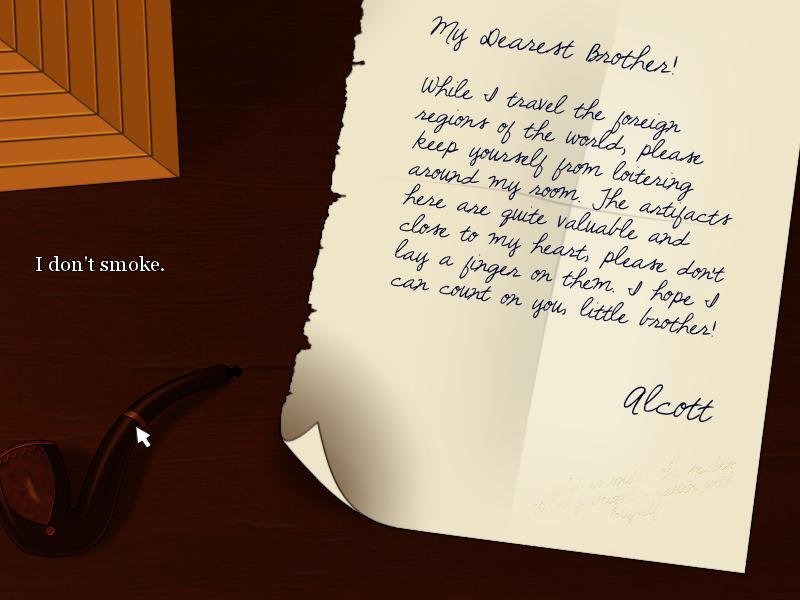 My Dearest Brother!
While I travel the foreign
regions of the world, please
keep yourself from loitering
around my room. The artifacts
here are quite valuable and
close to my heart, please don't
lay a finger on them. I hope I
can count on you, little brother!
Alcott
I don't smoke.